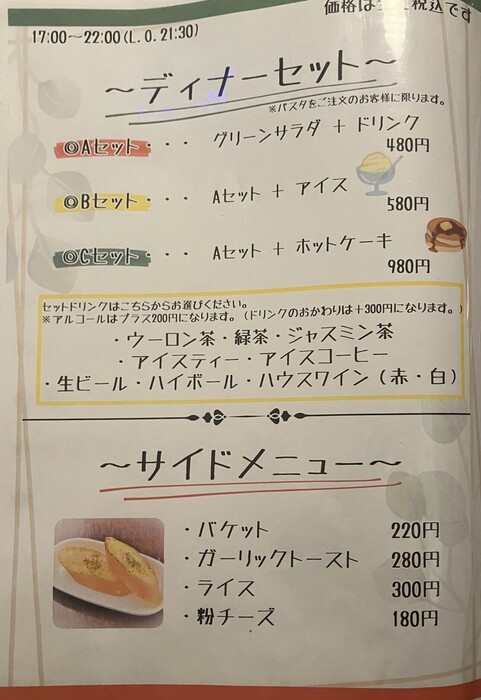 価格は全て税込です
17:00～22:00(L.O.21:30)
～ディナーセット～
※パスタをご注文のお客様に限ります。
◎Aセット・・・ グリーンサラダ + ドリンク
480円
◎Bセット・・・ Aセット + アイス
580円
◎Cセット・・・ Aセット + ホットケーキ
980円
セットドリンクはこちらからお選びください。
※アルコールはプラス200円になります。(ドリンクのおかわりは+300円になります。)
・ウーロン茶・緑茶・ジャスミン茶
・アイスティー・アイスコーヒー
・生ビール・ハイボール・ハウスワイン(赤・白)
～サイドメニュー～
・バケット 220円
・ガーリックトースト 280円
・ライス 300円
・粉チーズ 180円